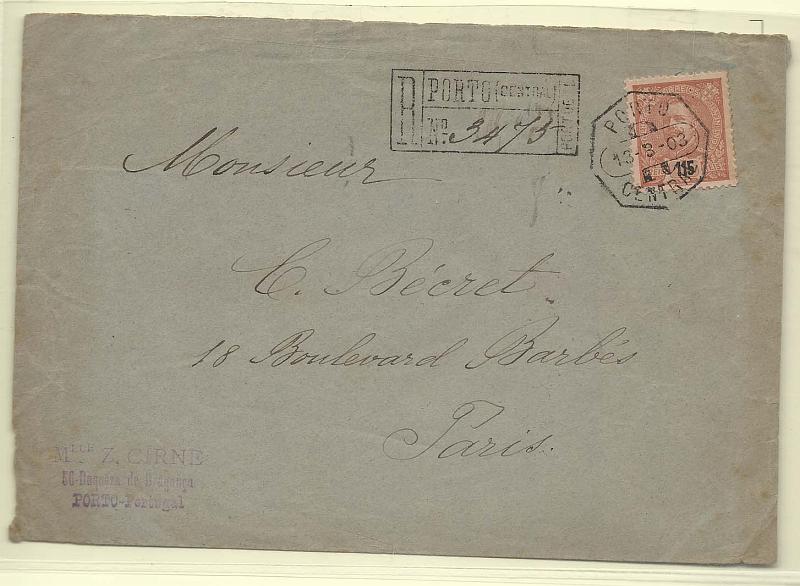 R PORTO (CENTRAL) PORTUGAL
No. 3473
PORTO
13-8-03
CENTRAL
CORREIOS
115
Monsieur
C. Bécret
18 Boulevard Barbés
Paris.
MLLE Z. CIRNE
56-Duqueza de Bragança
PORTO-Portugal